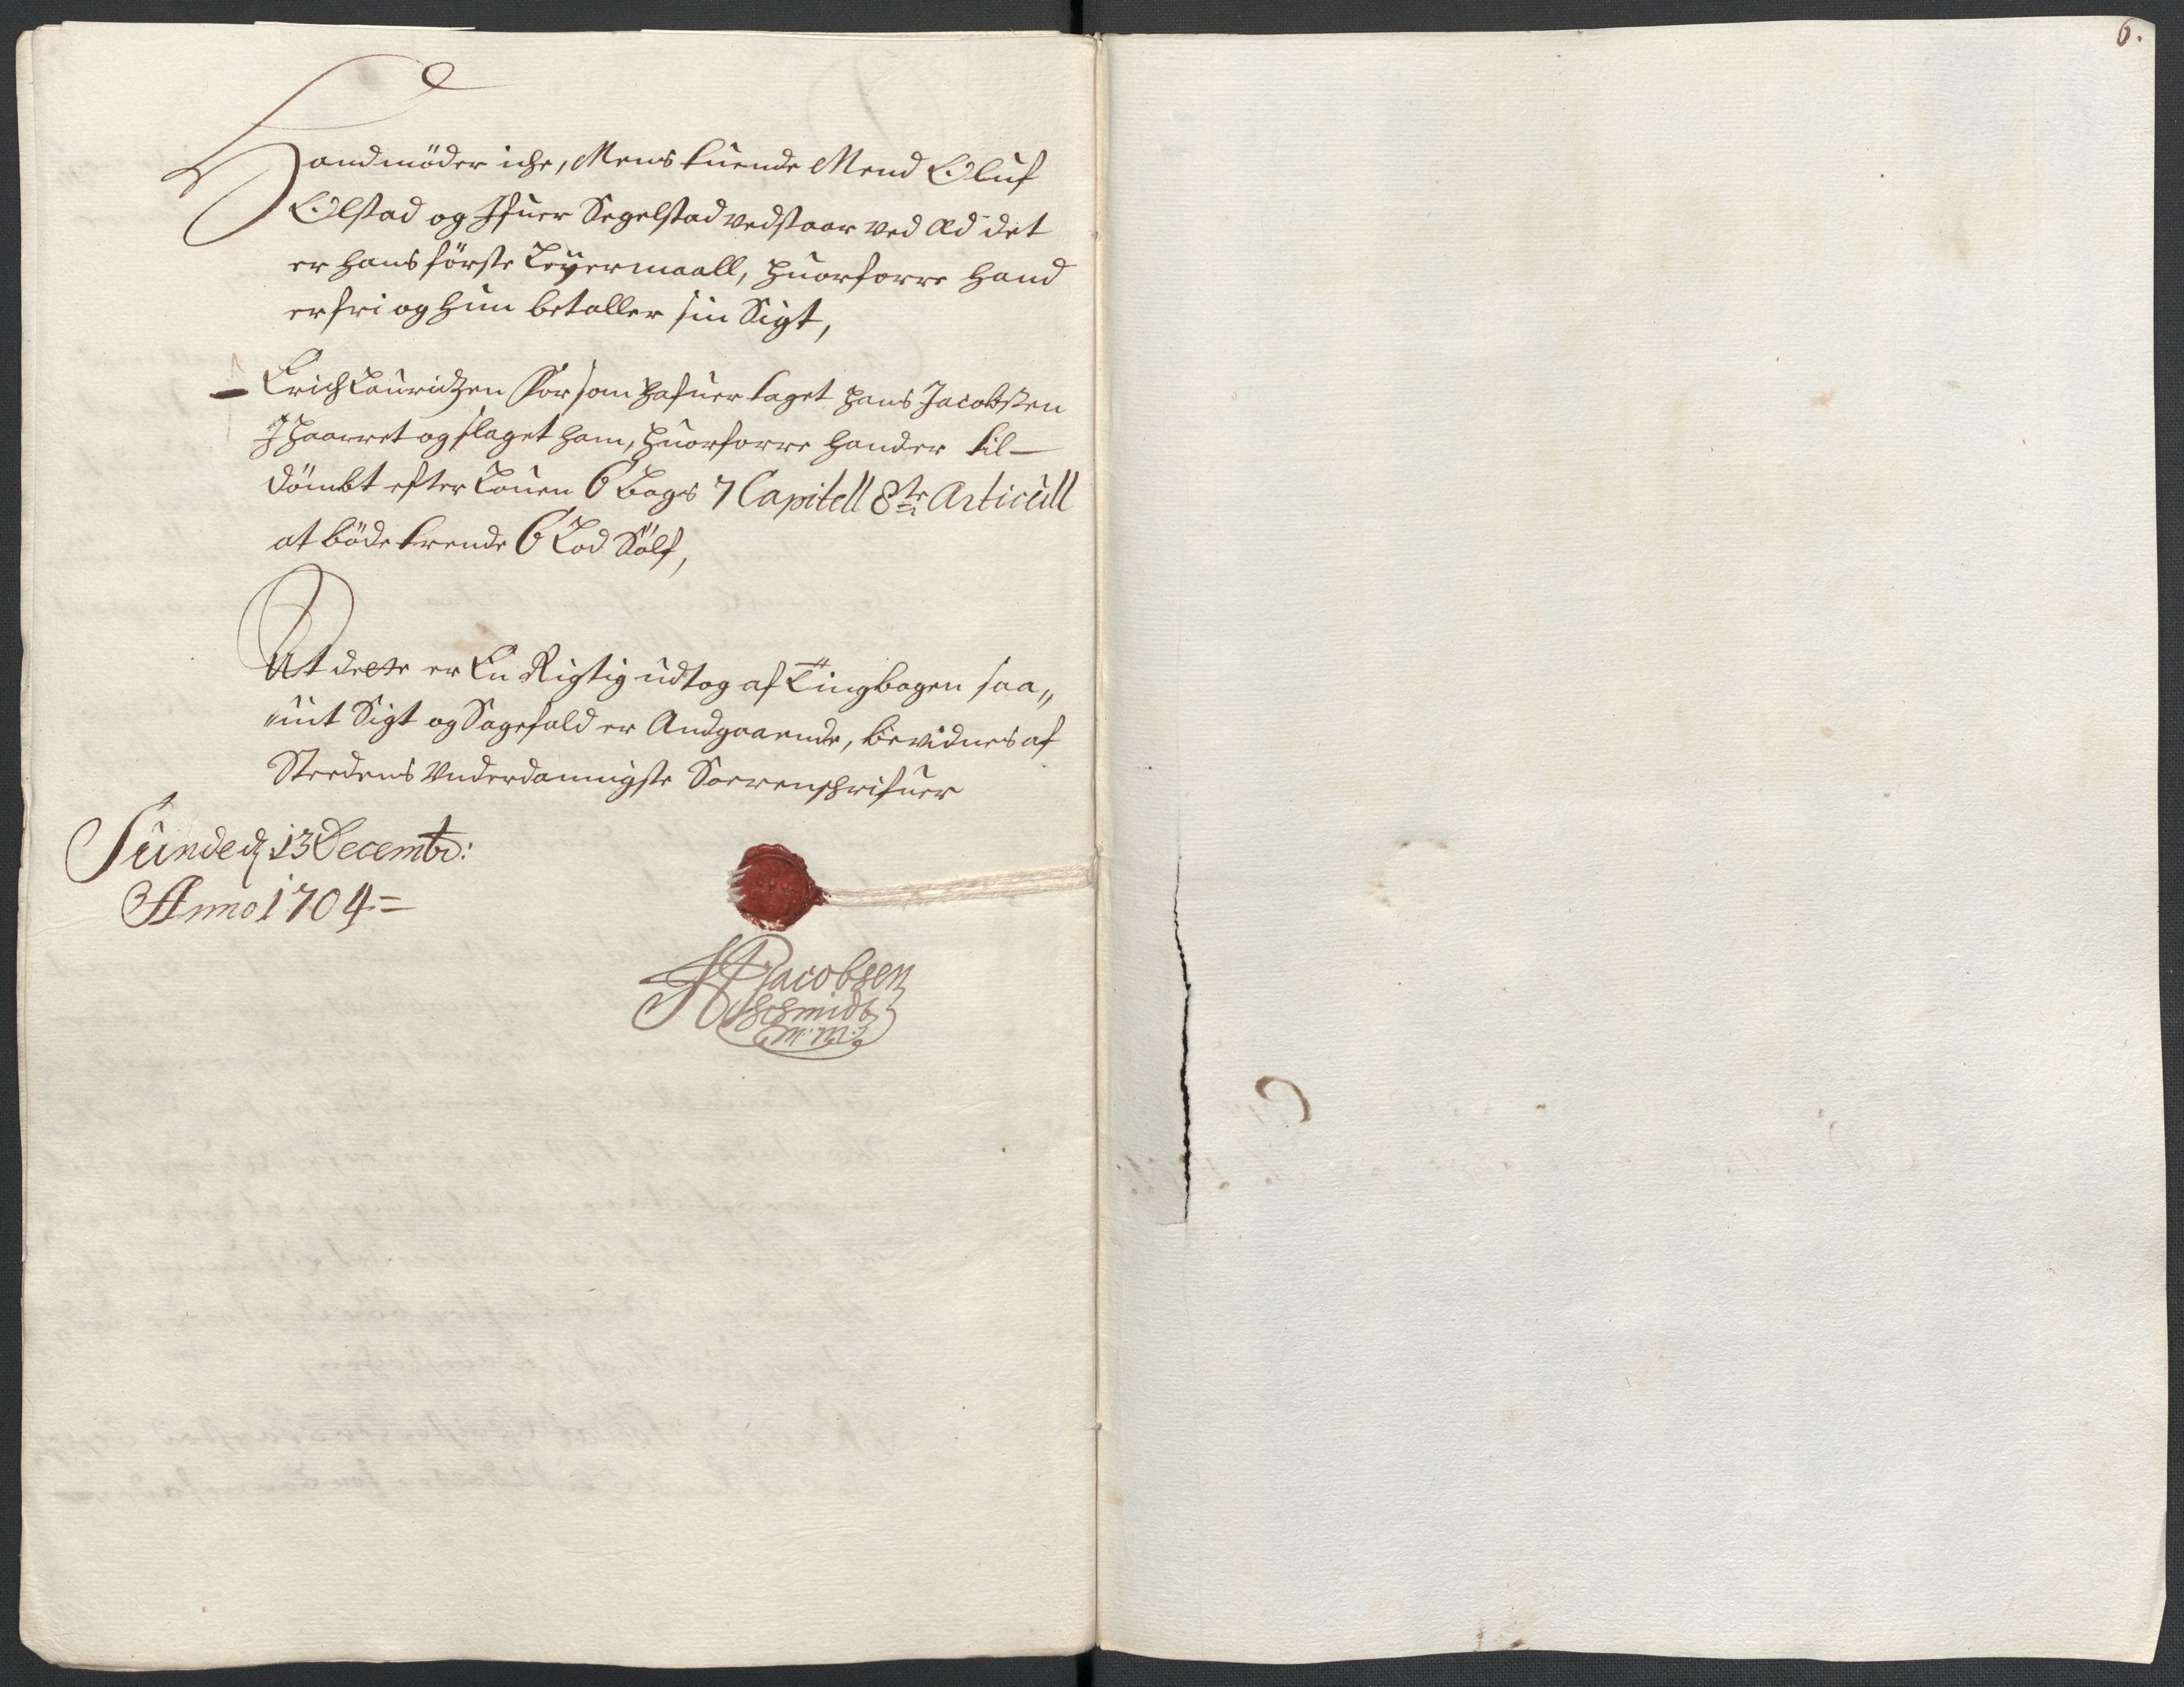 6.
Hand møder iche, Mens tuende Mend Oluf
Olstad og Ifuer Segelstad vedstaar ved Æd det
er hans første Leyermaall, huorforre Hand
er fri og hun betaller sin Sigt,
Erich Lauridtzen for som hafuer taget hans Jacobsen
J haarret og slaget ham, huorforre hander til-
dømbt efter Louen 6 bogs 7 Capitell 8te Articull
at bøde trende 6 Lod Sølf,
At dette er En Rigtig udtog af Tingbogen saa„
uit Sigt og Sagefald er Andgaaende, bevidnes af
Stedens Underdannigste Sorrenschrifuer
Sunde d 13 Decembr:
Anno 1704=
HPJacobsen
Schmidt
m:m: